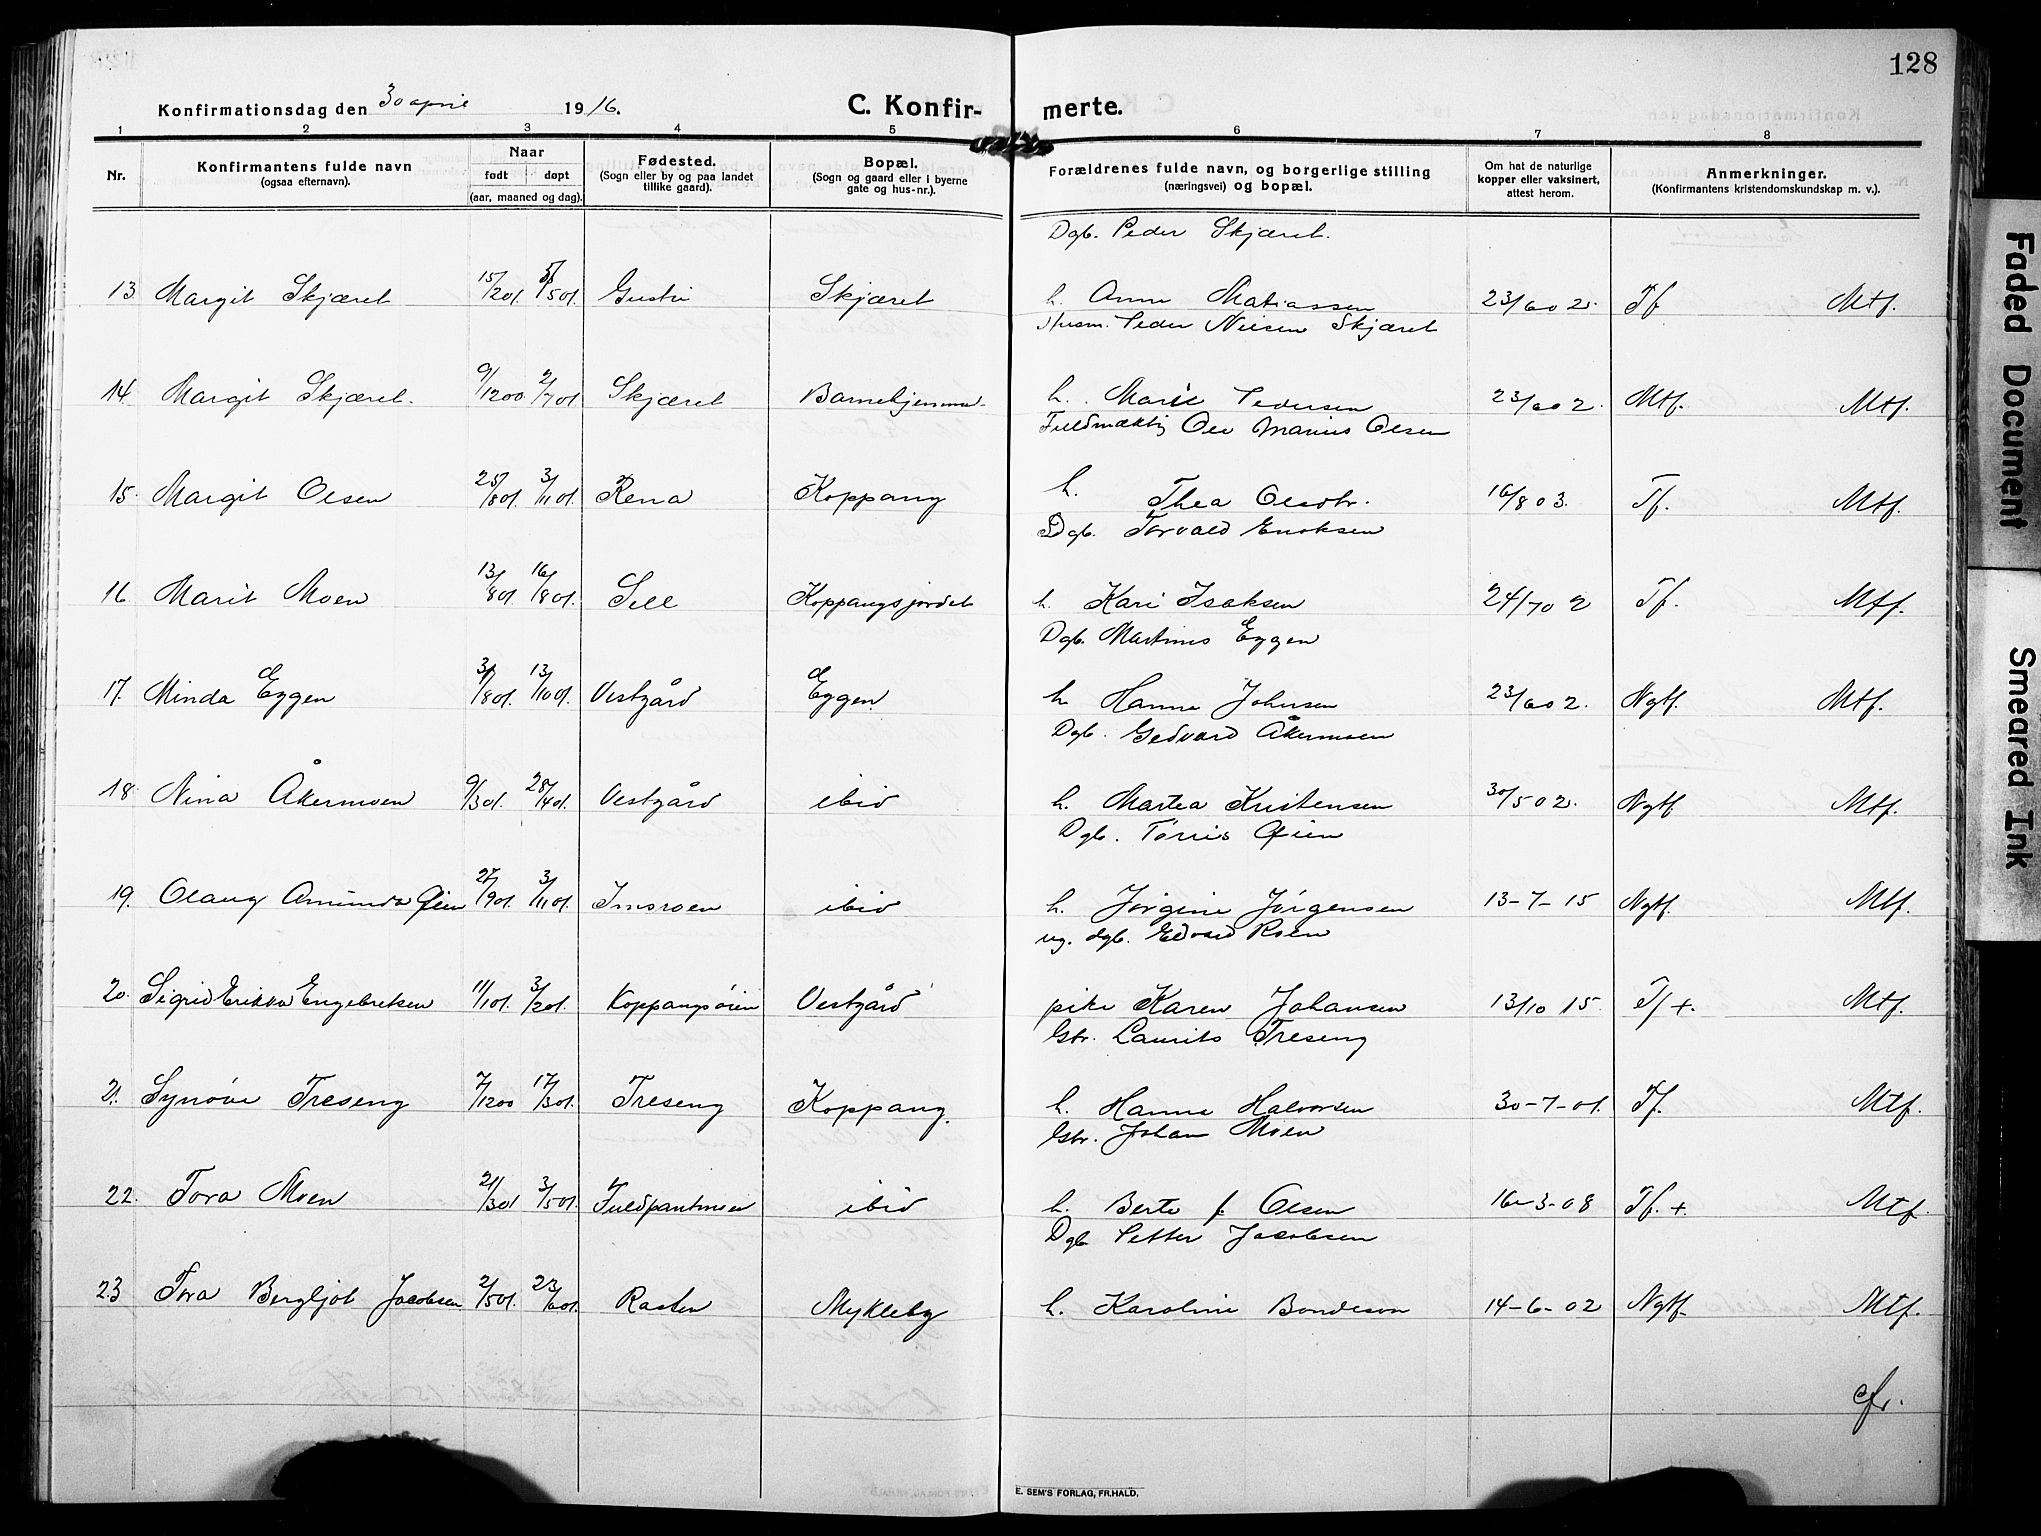 128
Konfirmationsdag den 30 april 1916.
C. Konfirmerte.
1 2 3 4 5 6 7 8
Nr.
Konfirmantens fulde navn
(ogsaa efternavn).
Naar
født døpt
(aar, maaned og dag).
Fødested.
(Sogn eller by og paa landet
tillike gaard).
Bopæl.
(Sogn og gaard eller i byerne
gate og hus-nr.).
Forældrenes fulde navn, og borgerlige stilling
(næringsvei) og bopæl.
Om hat de naturlige
kopper eller vaksinert,
attest herom.
Anmerkninger.
(Konfirmantens kristendomskundskap m. v.).
Dgb. Peder Skjæret.
13 Margit Skjæret 15/2 01. 5/5 01. Skjæret h. Anne Matiassen 23/6 02. Tf Mtf.
Husm. Peder Nilsen Skjæret
14 Margit Skjæret. 9/12 00 2/7 01. Skjæret Barnehjemmet h. Marie Pedersen 23/6 02. Mtf. Mtf.
Fuldmæktig Ole Marius Olsen
15. Margit Olsen 25/8 01. 3/11 01. Rena Koppang h. Thea Olsdtr. 16/8 03. Tf. Mtf.
Dgb. Torvald Enoksen
16 Marit Moen 13/8 01. 16/8 01. Sell Koppangsjordet h. Kari Isaksen 24/7 02 Tf. Mtf.
Dgb. Martinus Eggen
17. Minda Eggen /8 01. 13/10 01. Vestgård Eggen h. Hanna Johnsen 23/6 02. Ngtf. Mtf.
Dgb. Gedvard Åkermoen
18 Nina Åkermoen 9/3 01. 28/4 01. Vestgård ibid h. Martea Kristensen 30/5 02. Ngtf Mtf.
Dgb. Tørris Øien
19. Olaug Amunda Øien 27/9 01. 3/11 01. Imsroen ibid h. Jørgine Jørgensen 13-7-15 Ngtf. Mtf.
ug. dgb. Edvard Roen
20. Sigrid Erikka Engebretsen 11/1 01. 3/2 01. Koppangsøien Vestgård pike Karen Johansen 13/10 15. Tf +. Mtf.
Gbr. Laurits Treseng
21. Synøve Treseng 7/12 00 17/3 01. Treseng Koppang. h. Hanna Halvorsen 30-7-01. Tf. Mtf.
Gbr. Johan Moen
22. Tora Moen 21/3 01 3/5 01. ibid h. Berte J. Olsen 16-3-08 Tf. +. Mtf.
Dgb Petter Jacobsen
23 Tora Bergljot Jacobsen 2/5 01. 23/6 01. Rasten Mykleby h. Karoline Bondeson 14-6-02 Ngtf. Mtf.
cfr.
E. SEM'S FORLAG, FR.HALD.
Faded Document
Smeared Ink